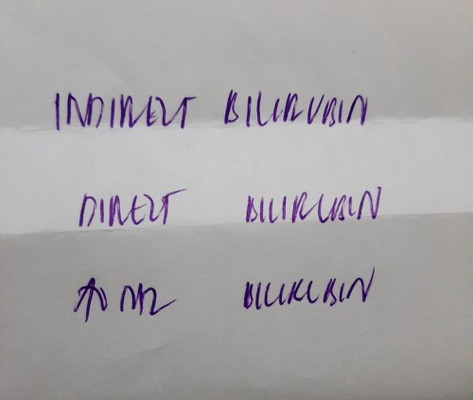 INDIREKT BILIRUBIN
DIREKT BILIRUBIN
BILIRUBIN